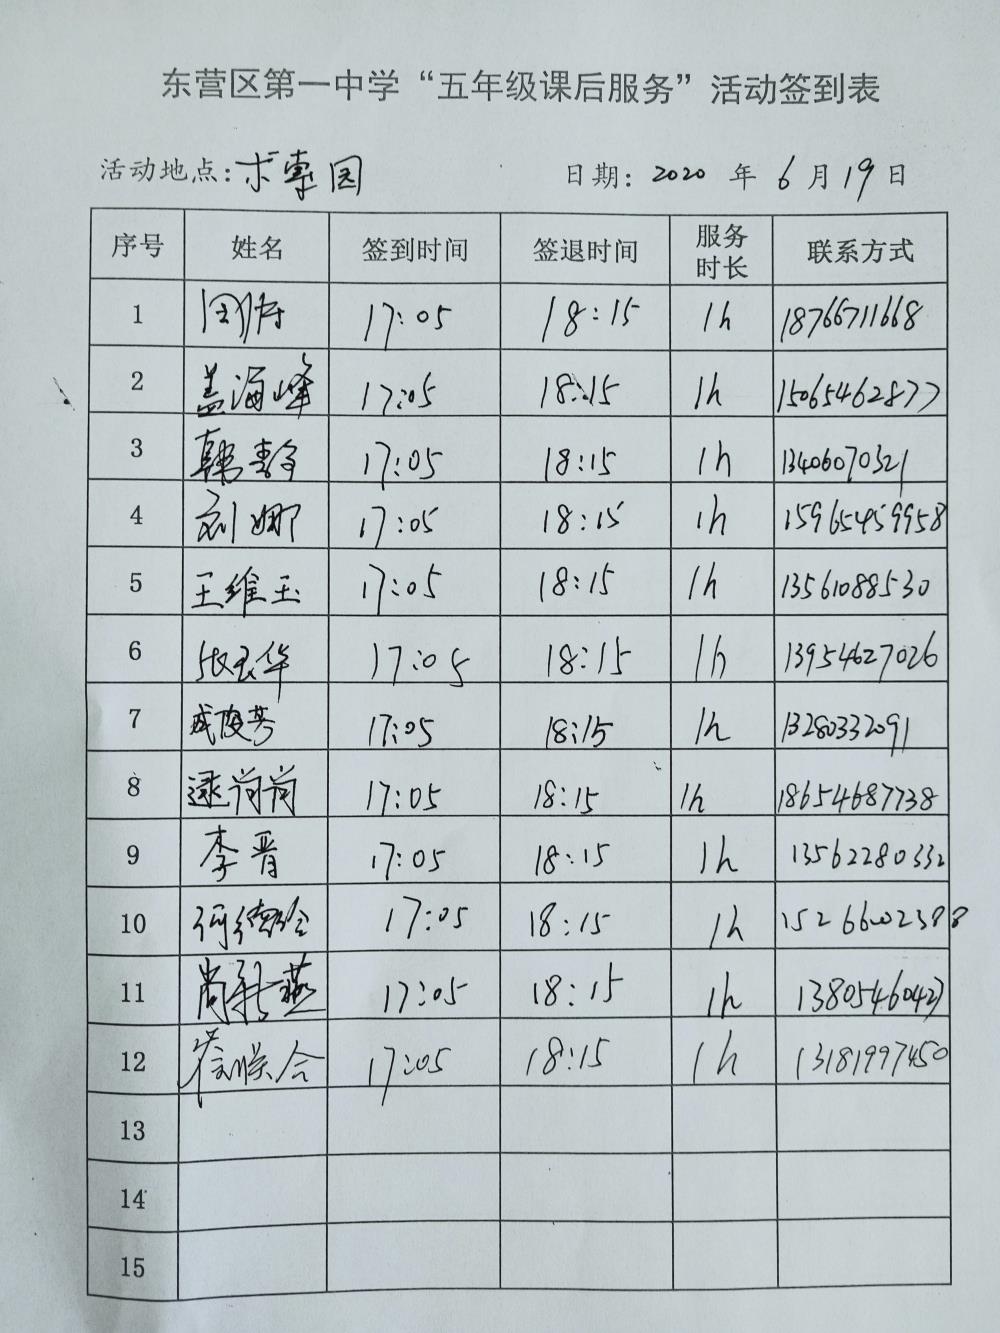 东营区第一中学“五年级课后服务”活动签到表
活动地点: 求索园 日期: 2020 年 6 月 19 日
序号 姓名 签到时间 签退时间 服务时长 联系方式
1 17:05 18:15 1h 18766711668
2 盖海峰 17:05 18:15 1h 15065462877
3 韩静 17:05 18:15 1h 13406070321
4 刘娜 17:05 18:15 1h 15965459958
5 王维玉 17:05 18:15 1h 13561088530
6 张玉华 17:05 18:15 1h 13954627026
7 成俊芳 17:05 18:15 1h 13280332091
8 逯尚尚 17:05 18:15 1h 18654687738
9 李晋 17:05 18:15 1h 13562280332
10 17:05 18:15 1h 15266602388
11 尚新燕 17:05 18:15 1h 13805460427
12 崔联合 17:05 18:15 1h 13181997450
13
14
15